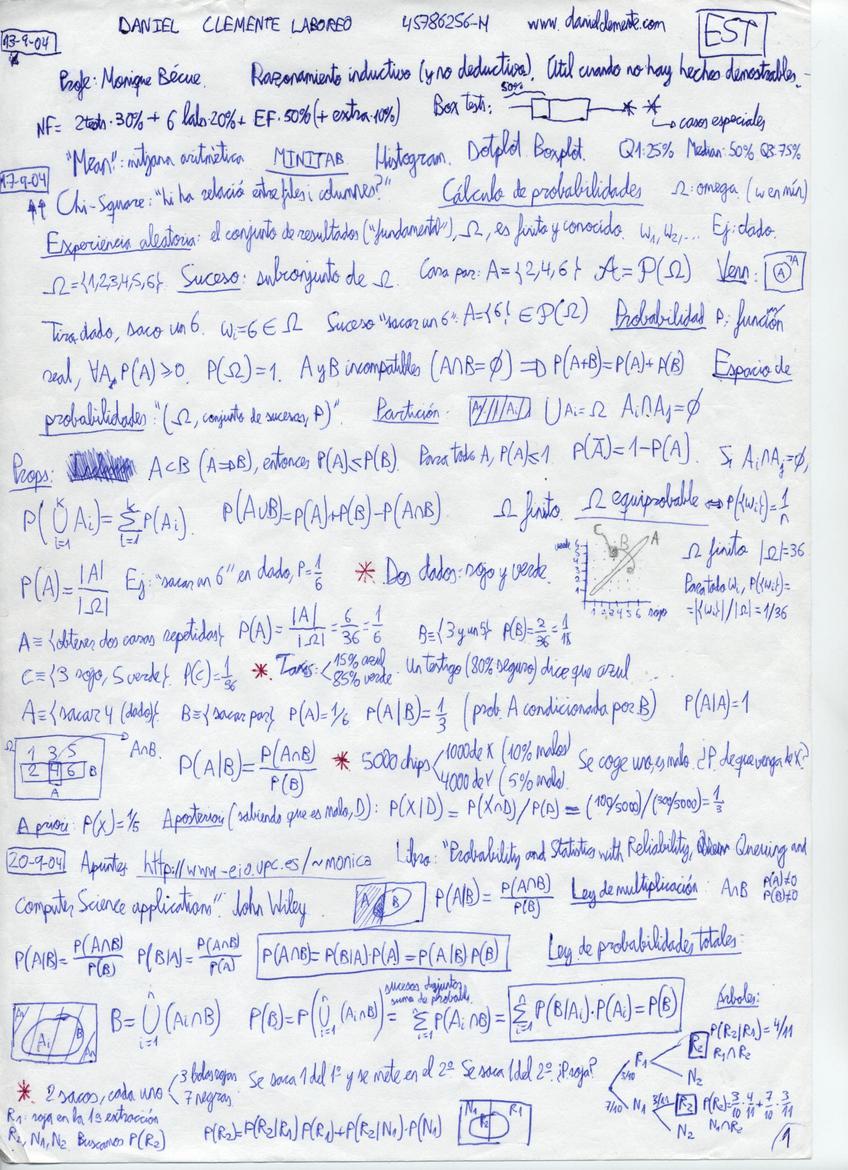 DANIEL CLEMENTE LABOREO 45786256-M www.danielclemente.com EST
13-9-04
Profe: Monique Bécue. Razonamiento inductivo (y no deductivo). Útil cuando no hay hechos demostrables.
NF= 2tests·30% + 6 labs·20% + EF·50% (+ extra·10%) Box test: 50% casos especiales
"Mean": mitjana aritmètica MINITAB Histogram. Dotplot. Boxplot. Q1:25% Median:50% Q3:75%
17-9-04 Chi-Square: "hi ha relació entre files i columnes?" Cálculo de probabilidades Ω: omega. (w en min)
Experiencia aleatoria: el conjunto de resultados ("fundamental"), Ω, es finito y conocido. W1, W2,... Ej: dado.
Ω={1,2,3,4,5,6} Suceso: subconjunto de Ω. Cara par: A={2,4,6} 𝒜=P(Ω) Venn: A
Tira dado, saco un 6. ωi=6 ∈ Ω Suceso "sacar un 6": A={6} ∈ P(Ω) Probabilidad P: función
real, ∀A, P(A)≥0. P(Ω)=1. A y B incompatibles (A∩B=∅) ⇒ P(A+B)=P(A)+P(B) Espacio de
probabilidades: "(Ω, conjunto de sucesos, P)". Partición: ∪Ai=Ω Ai∩Aj=∅
Props: A⊂B (A⇒B), entonces P(A)≤P(B). Para todo A, P(A)≤1. P(Ā)=1-P(A). Si Ai∩Aj=∅,
P(∪i=1^k Ai)=Σi=1^k P(Ai). P(A∪B)=P(A)+P(B)-P(A∩B) Ω finito. Ω equiprobable ⇔ P({wi})=1/n
P(A)=|A|/|Ω| Ej: "sacar un 6" en dado, P=1/6 * Dos dados: rojo y verde. verde 1 2 3 4 5 6 rojo C B A Ω finito |Ω|=36
Para todo wi, P({wi})=
=|{wi}|/|Ω|=1/36
A≡{obtener dos caras repetidas} P(A)=|A|/|Ω|=6/36=1/6 B≡{3 y un 5} P(B)=2/36=1/18
C≡{3 rojo, 5 verde} P(C)=1/36 * Taxis: 15% azul 85% verde. Un testigo (80% seguro) dice que azul...
A≡{sacar 4 (dado)} B≡{sacar par} P(A)=1/6 P(A|B)=1/3 (prob. A condicionada por B) P(A|A)=1
Ω 1 3 5 2 4 6 B A A∩B. P(A|B)=P(A∩B)/P(B) * 5000 chips 1000 de X (10% malos) 4000 de Y (5% malo). Se coge uno, es malo. ¿P. de que venga de X?
A priori: P(X)=1/5 A posteriori (sabiendo que es malo, D): P(X|D)=P(X∩D)/P(D)=(100/5000)/(300/5000)=1/3
20-9-04 Apuntes http://www-eio.upc.es/~monica Libro: "Probability and Statistics with Reliability, Queuing and
Computer Science applications". John Wiley. A B P(A|B)=P(A∩B)/P(B) Ley de multiplicación: A∩B P(A)≠0 P(B)≠0
P(A|B)=P(A∩B)/P(B) P(B|A)=P(A∩B)/P(A) P(A∩B)=P(B|A)·P(A)=P(A|B)P(B) Ley de probabilidades totales:
A1 Ai B An B=∪i=1^n(Ai∩B) P(B)=P(∪i=1^n(Ai∩B)) sucesos disjuntos suma de probabs. = Σi=1^n P(Ai∩B)=Σi=1^n P(B|Ai)·P(Ai)=P(B) Árboles:
R1 3/10 R2 P(R2|R1)=4/11 R1∩R2 N2
* 2 sacos, cada uno 3 bolas rojas 7 negras. Se saca 1 del 1º y se mete en el 2º. Se saca 1 del 2º. ¿P roja?
7/10 N1 3/11 R2 P(R2)=3/10·4/11+7/10·3/11 N1∩R2 N2
R1: roja en la 1ª extracción
R2, N1, N2 Buscamos P(R2) P(R2)=P(R2|R1)P(R1)+P(R2|N1)·P(N1) N1 R1 R2
1